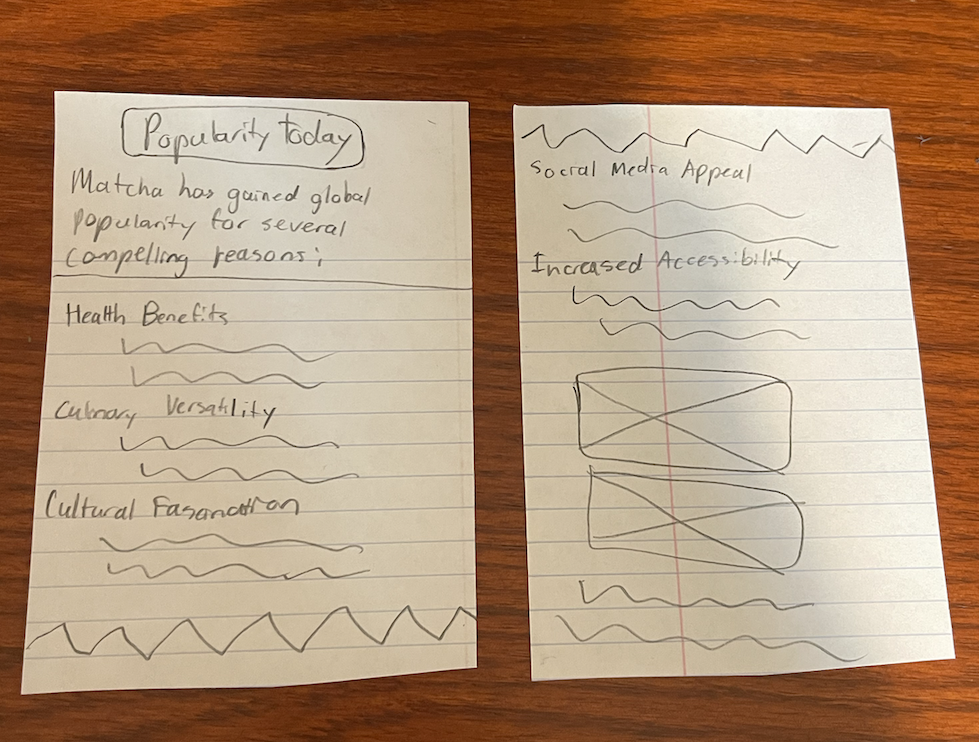 Popularity today
Matcha has gained global
popularity for several
compelling reasons;
Health Benefits
Culinary Versatility
Cultural Fasanation
Social Media Appeal
Increased Accessibility